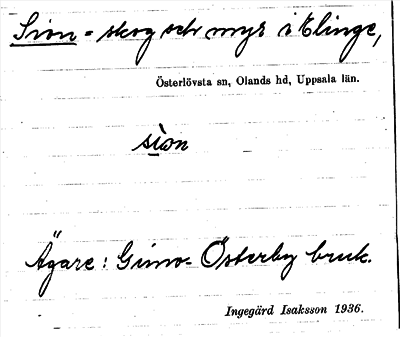 Sion = skog och myr i Elinge,
Österlövsta sn, Olands hd, Uppsala län.
sion
Ägare: Gimo- Österby bruk.
Ingegärd Isaksson 1936.